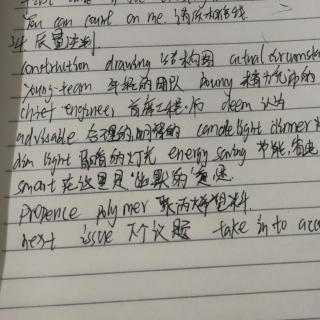 You can count on me. 请放心
34 质量法则
construction drawing 结构图 actual circumstan
young-team 年轻的团队 young 精力充沛的
chief engineer 首席工程师 deem 认为
advisable 合理的,明智的 candle light dinner
dim light 昏暗的灯光 energy saving 节能,省电
smart 在这里是"幽默的"意思
Propence polymer 聚丙烯塑料
next issue 下个议题 take in to acc